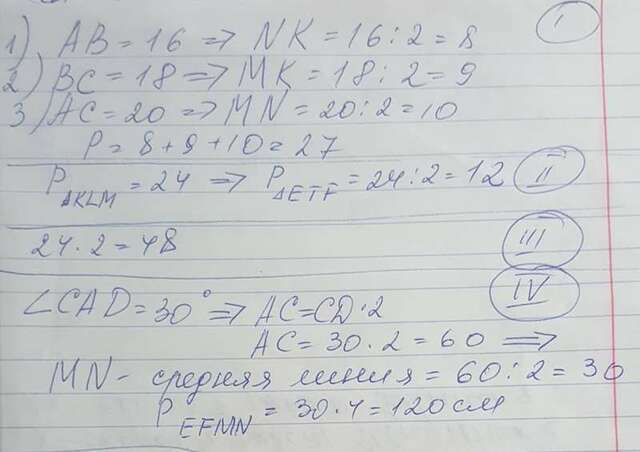 I
1) AB = 16 => NK = 16 : 2 = 8
2) BC = 18 => MK = 18 : 2 = 9
3) AC = 20 => MN = 20 : 2 = 10
P = 8 + 9 + 10 = 27
P ΔKLM = 24 => P ΔETF = 24 : 2 = 12 II
24 · 2 = 48 III
IV
∠CAD = 30° => AC = CD · 2
AC = 30 · 2 = 60 =>
MN - средняя линия = 60 : 2 = 30
P EFMN = 30 · 4 = 120 см